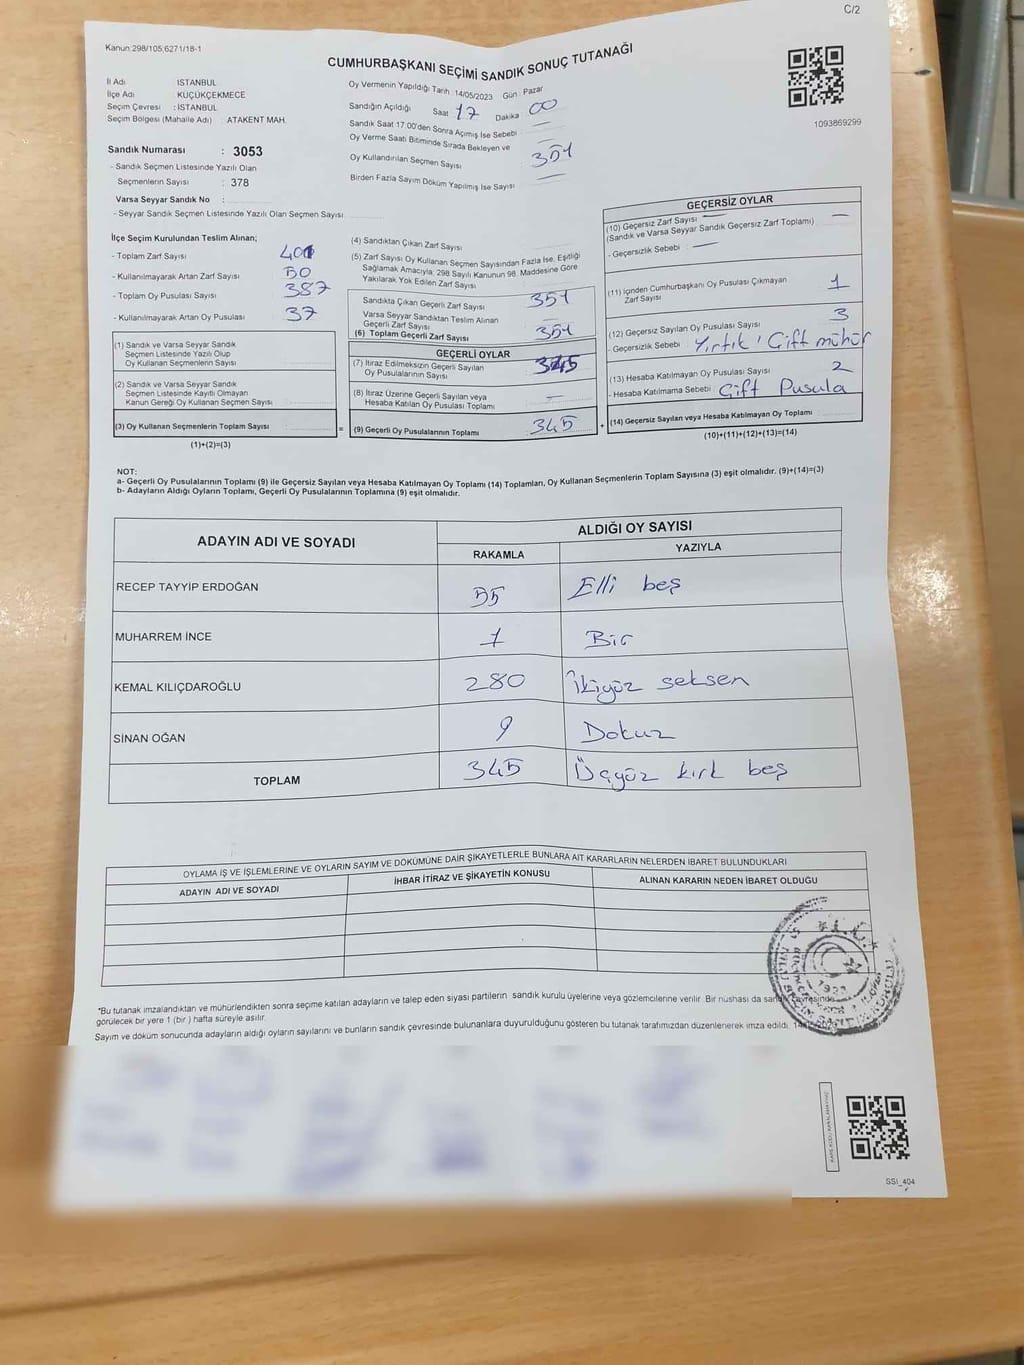 C/2
Kanun:298/105,6271/18-1
CUMHURBAŞKANI SEÇİMİ SANDIK SONUÇ TUTANAĞI
İl Adı : İSTANBUL
İlçe Adı : KÜÇÜKÇEKMECE
Seçim Çevresi : İSTANBUL
Seçim Bölgesi (Mahalle Adı) : ATAKENT MAH.
Oy Vermenin Yapıldığı Tarih 14/05/2023 Gün : Pazar
Sandığın Açıldığı Saat 17 Dakika 00
Sandık Saat 17:00'den Sonra Açımış İse Sebebi
Oy Verme Saati Bitiminde Sırada Bekleyen ve
Oy Kullandırılan Seçmen Sayısı 351
Birden Fazla Sayım Döküm Yapılmış İse Sayısı —
1093869299
Sandık Numarası : 3053
- Sandık Seçmen Listesinde Yazılı Olan
Seçmenlerin Sayısı : 378
Varsa Seyyar Sandık No :
- Seyyar Sandık Seçmen Listesinde Yazılı Olan Seçmen Sayısı
İlçe Seçim Kurulundan Teslim Alınan;
- Toplam Zarf Sayısı 401
- Kullanılmayarak Artan Zarf Sayısı 50
- Toplam Oy Pusulası Sayısı 387
- Kullanılmayarak Artan Oy Pusulası 37
(1) Sandık ve Varsa Seyyar Sandık
Seçmen Listesinde Yazılı Olup
Oy Kullanan Seçmenlerin Sayısı
(2) Sandık ve Varsa Seyyar Sandık
Seçmen Listesinde Kayıtlı Olmayan
Kanun Gereği Oy Kullanan Seçmen Sayısı
(3) Oy Kullanan Seçmenlerin Toplam Sayısı
(1)+(2)=(3)
(4) Sandıktan Çıkan Zarf Sayısı
(5) Zarf Sayısı Oy Kullanan Seçmen Sayısından Fazla İse, Eşitliği
Sağlamak Amacıyla; 298 Sayılı Kanunun 98. Maddesine Göre
Yakılarak Yok Edilen Zarf Sayısı
Sandıkta Çıkan Geçerli Zarf Sayısı 351
Varsa Seyyar Sandıktan Teslim Alınan
Geçerli Zarf Sayısı —
(6) Toplam Geçerli Zarf Sayısı 351
GEÇERLİ OYLAR
(7) İtiraz Edilmeksizin Geçerli Sayılan
Oy Pusulalarının Sayısı 345
(8) İtiraz Üzerine Geçerli Sayılan veya
Hesaba Katılan Oy Pusulası Toplamı —
= (9) Geçerli Oy Pusulalarının Toplamı 345 +
GEÇERSİZ OYLAR
(10) Geçersiz Zarf Sayısı —
(Sandık ve Varsa Seyyar Sandık Geçersiz Zarf Toplamı)
- Geçersizlik Sebebi —
(11) İçinden Cumhurbaşkanı Oy Pusulası Çıkmayan
Zarf Sayısı 1
(12) Geçersiz Sayılan Oy Pusulası Sayısı 3
- Geçersizlik Sebebi : Yırtık / Çift mühür
(13) Hesaba Katılmayan Oy Pusulası Sayısı 2
- Hesaba Katılmama Sebebi : Çift Pusula
(14) Geçersiz Sayılan veya Hesaba Katılmayan Oy Toplamı
(10)+(11)+(12)+(13)=(14)
NOT:
a- Geçerli Oy Pusulalarının Toplamı (9) ile Geçersiz Sayılan veya Hesaba Katılmayan Oy Toplamı (14) Toplamları, Oy Kullanan Seçmenlerin Toplam Sayısına (3) eşit olmalıdır. (9)+(14)=(3)
b- Adayların Aldığı Oyların Toplamı, Geçerli Oy Pusulalarının Toplamına (9) eşit olmalıdır.
ADAYIN ADI VE SOYADI ALDIĞI OY SAYISI
RAKAMLA YAZIYLA
RECEP TAYYİP ERDOĞAN 55 Elli beş
MUHARREM İNCE 1 Bir
KEMAL KILIÇDAROĞLU 280 İkiyüz seksen
SİNAN OĞAN 9 Dokuz
TOPLAM 345 Üçyüz kırk beş
OYLAMA İŞ VE İŞLEMLERİNE VE OYLARIN SAYIM VE DÖKÜMÜNE DAİR ŞİKAYETLERLE BUNLARA AİT KARARLARIN NELERDEN İBARET BULUNDUKLARI
ADAYIN ADI VE SOYADI İHBAR İTİRAZ VE ŞİKAYETİN KONUSU ALINAN KARARIN NEDEN İBARET OLDUĞU
"Bu tutanak imzalandıktan ve mühürlendikten sonra seçime katılan adayların ve talep eden siyasi partilerin sandık kurulu üyelerine veya gözlemcilerine verilir. Bir nüshası da sandık çevresinde
görülecek bir yere 1 (bir ) hafta süreyle asılır.
Sayım ve döküm sonucunda adayların aldığı oyların sayılarını ve bunların sandık çevresinde bulunanlara duyurulduğunu gösteren bu tutanak tarafımızdan düzenlenerek imza edildi.
T.C.
KARE KODU KARALAMAYINIZ
SSI_404